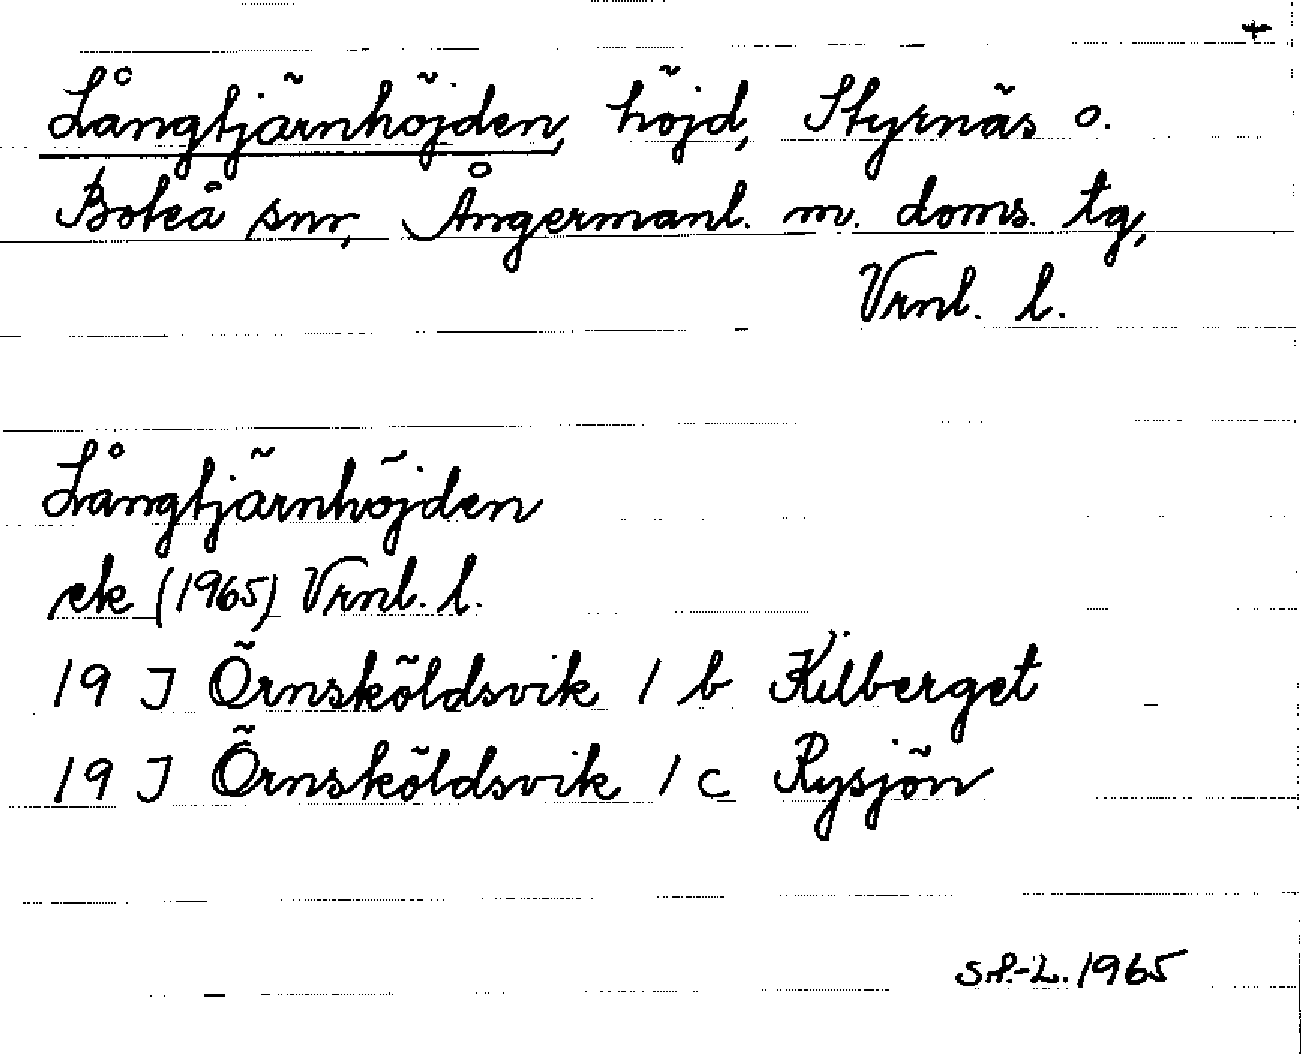 +
Långtjärnhöjden, höjd, Styrnäs o.
Boteå snr, Ångermanl. m. doms. tg,
Vrnl. l.
Långtjärnhöjden
ek (1965) Vrnl. l.
19 J Örnsköldsvik 1 b Kilberget
19 J Örnsköldsvik 1 c Rysjön
S.P.-L. 1965